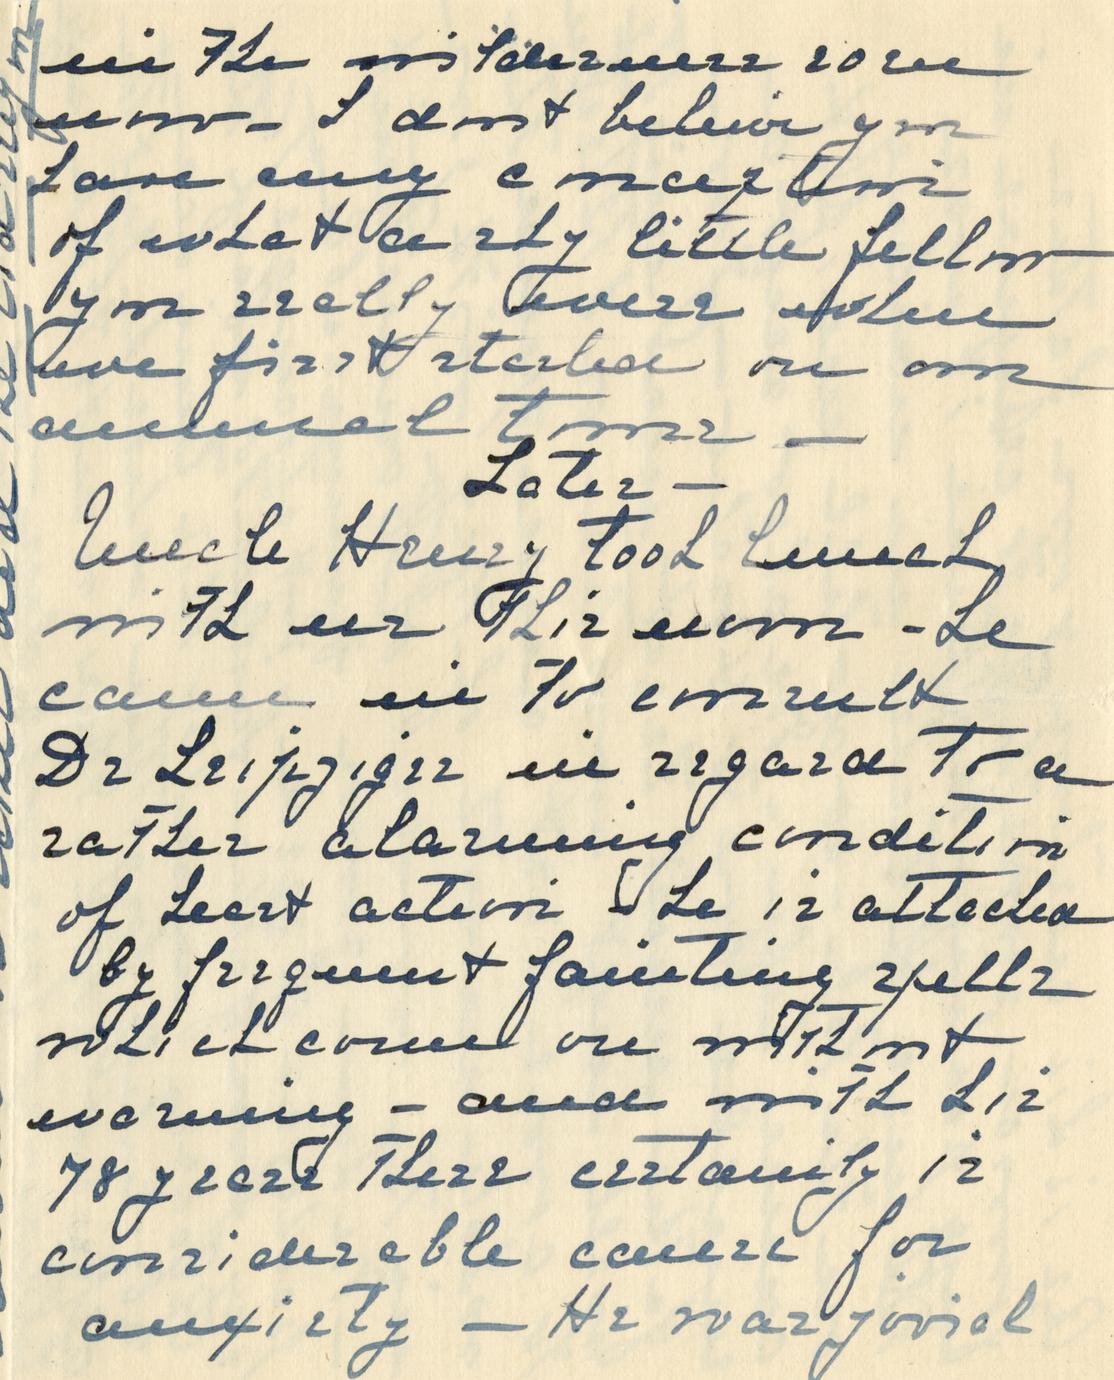 in the wilderness rose
now - I don't believe you
have any conception
of what a shy little fellow
you really were when
we first started on our
annual tours —
Later —
Uncle Henry took lunch
with us this noon - he
came in to consult
Dr Leipziger in regard to a
rather alarming condition
of heart action - he is attacked
by frequent fainting spells
which come on without
warning - and with his
78 years there certainly is
considerable cause for
anxiety — He was jovial